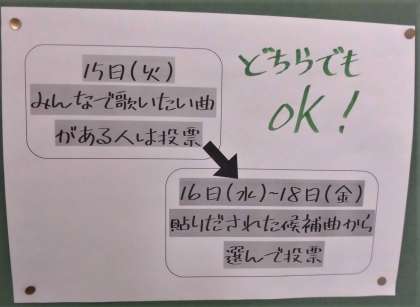 15日(火)
みんなで歌いたい曲
がある人は投票
どちらでも
OK!
16日(水)~18日(金)
貼りだされた候補曲から
選んで投票